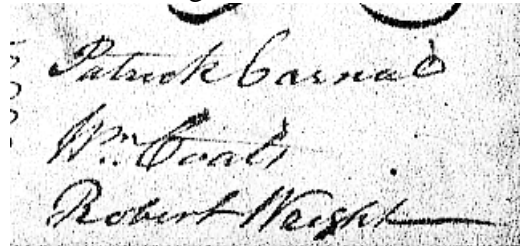 Patrick Carnad
Wm Coats
Robert Weight